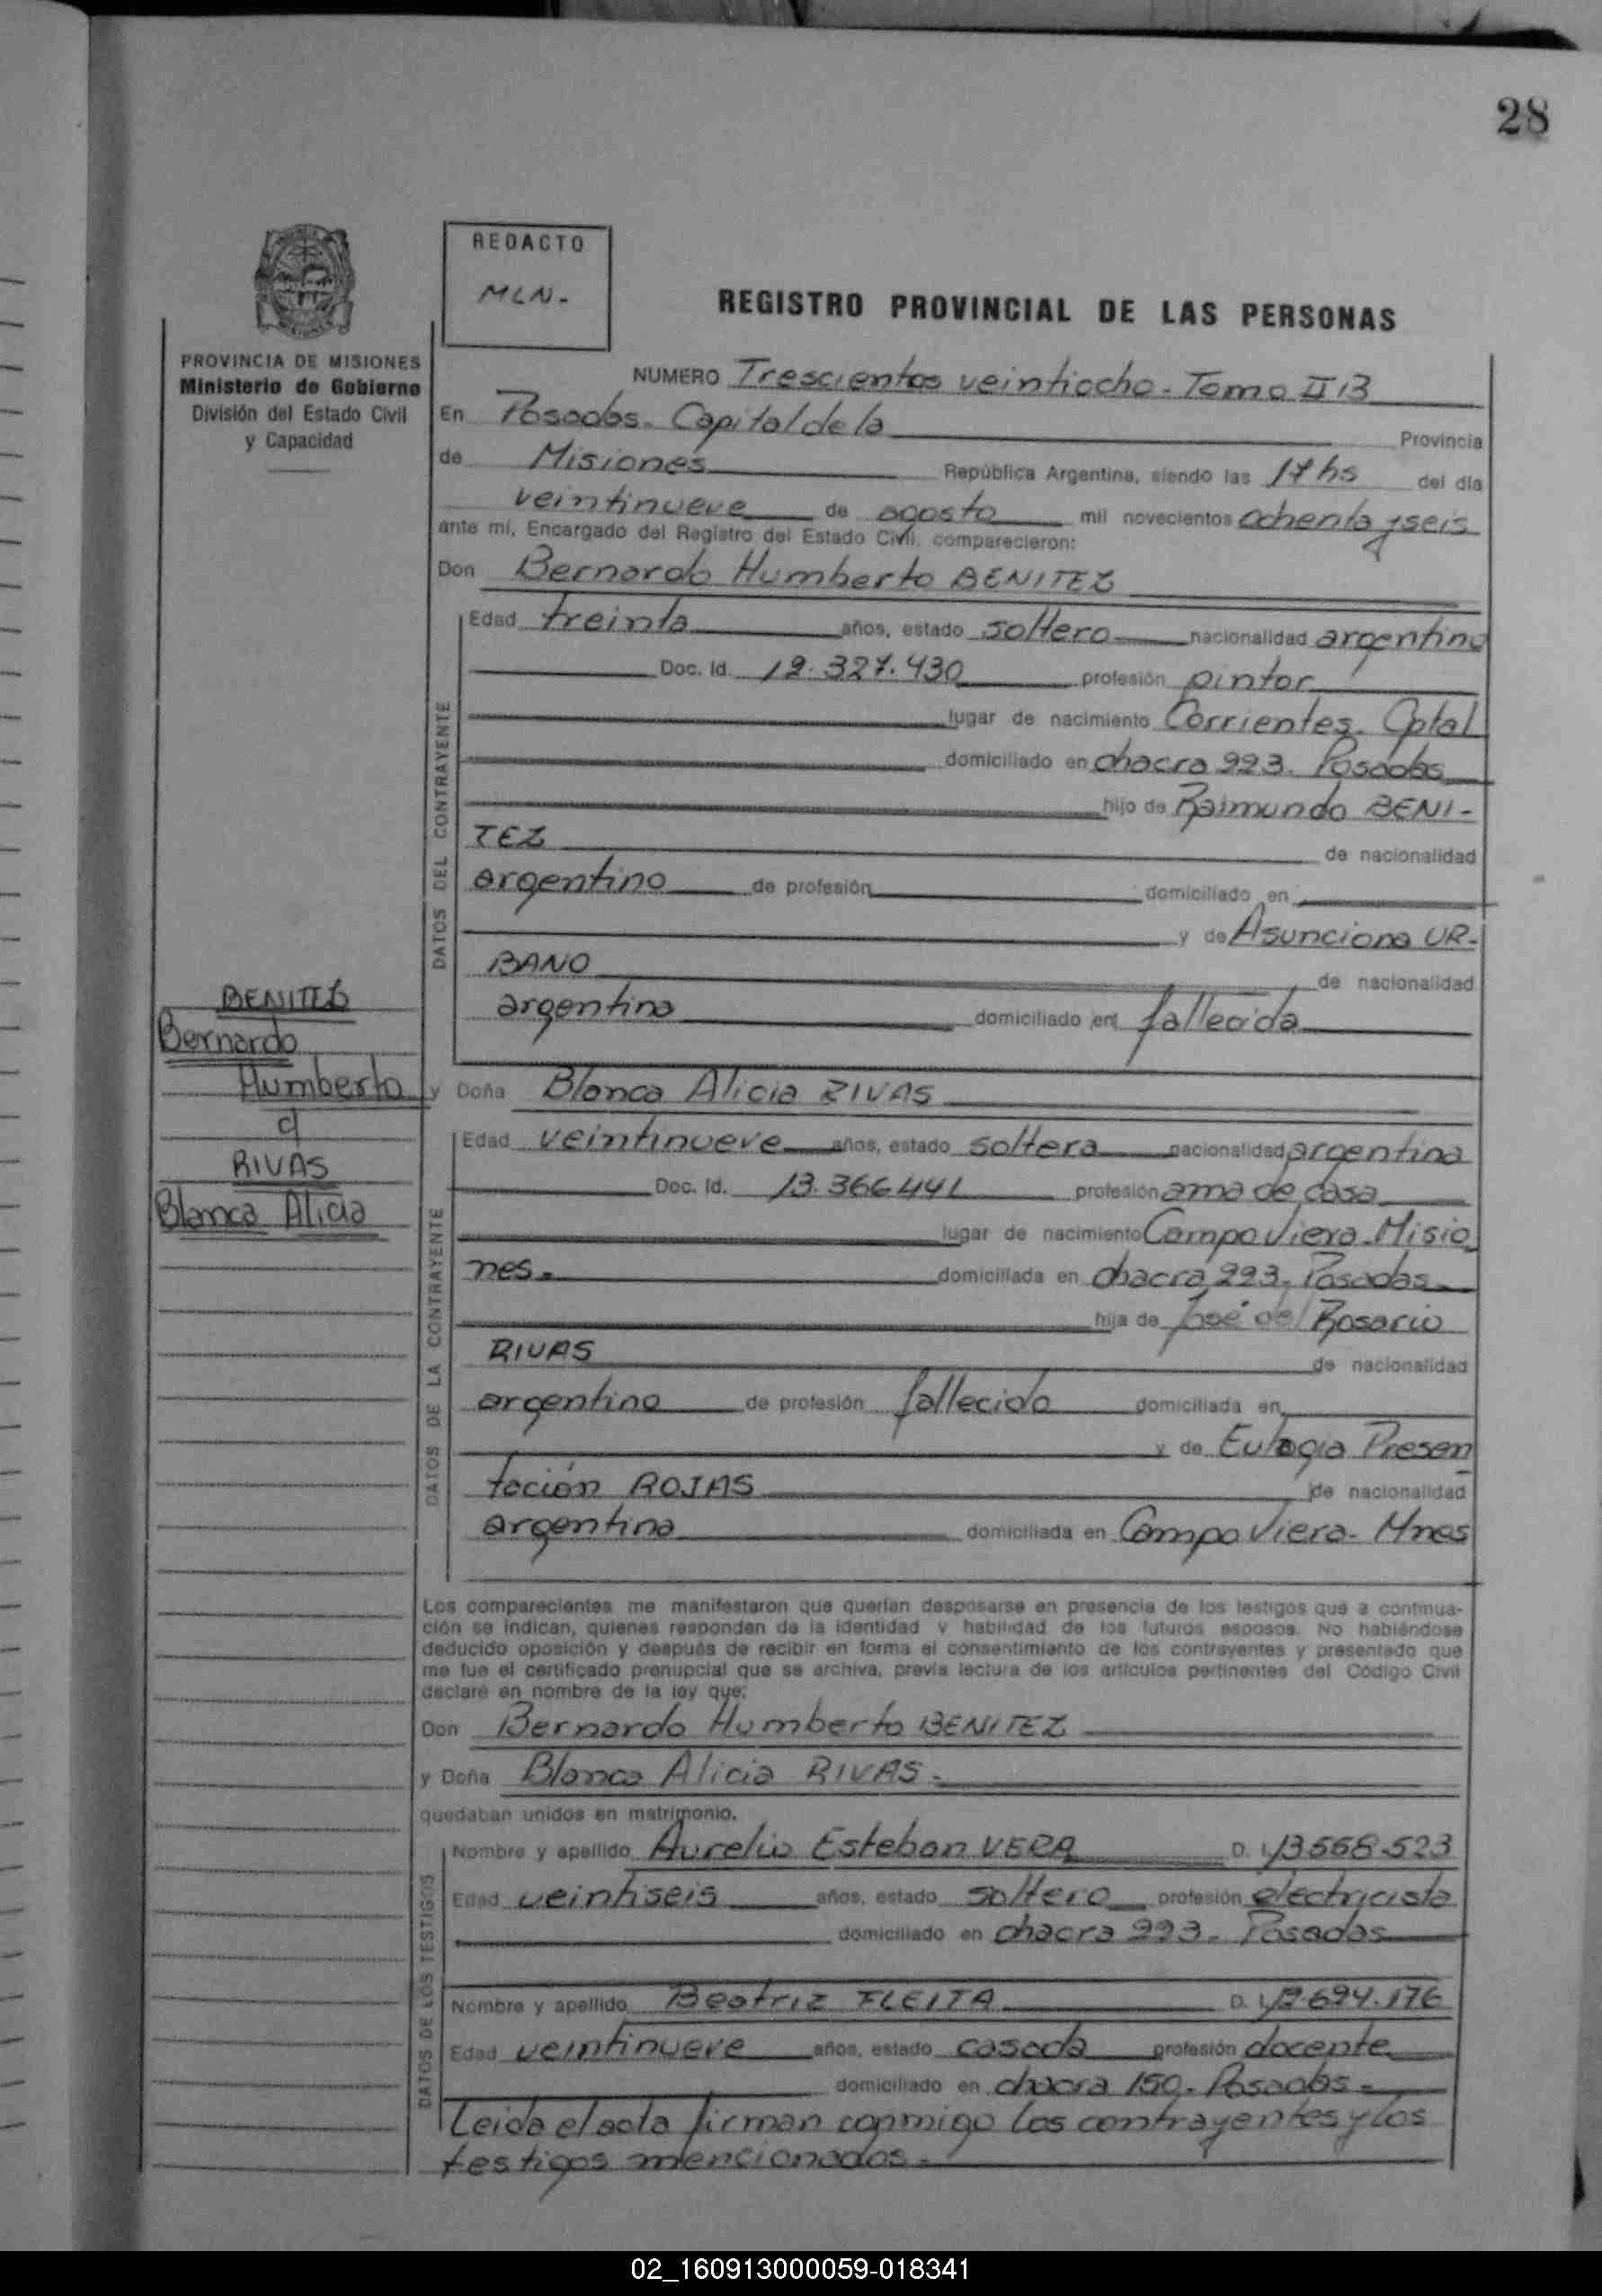 28
REDACTO
MLN.-
REGISTRO PROVINCIAL DE LAS PERSONAS
PROVINCIA DE MISIONES
Ministerio de Gobierno
División del Estado Civil
y Capacidad
NUMERO Trescientos veintiocho - Tomo II B
En Posadas. Capital de la Provincia
de Misiones República Argentina, siendo las 17 hs del día
veintinueve de agosto mil novecientos ochenta y seis
ante mí, Encargado del Registro del Estado Civil, comparecieron:
Don Bernardo Humberto BENITEZ
DATOS DEL CONTRAYENTE
Edad treinta años, estado soltero nacionalidad argentino
Doc. Id. 12.327.430 profesión pintor
lugar de nacimiento Corrientes. Cptal
domiciliado en chacra 223. Posadas
hijo de Raimundo BENI-
TEZ de nacionalidad
argentino de profesión domiciliado en
y de Asunciona UR-
BANO de nacionalidad
argentina domiciliado en fallecida
BENITEZ
Bernardo
Humberto
c/
RIVAS
Blanca Alicia
y Doña Blanca Alicia RIVAS
DATOS DE LA CONTRAYENTE
Edad veintinueve años, estado soltera nacionalidad argentina
Doc. Id. 13.366441 profesión ama de casa
lugar de nacimiento Campo Viera-Misio
nes.- domiciliada en chacra 223. Posadas
hija de José del Rosario
RIVAS de nacionalidad
argentino de profesión fallecido domiciliada en
y de Eulogia Presen
tación ROJAS de nacionalidad
argentina domiciliada en Campo Viera- Mnes
Los comparecientes me manifestaron que querían desposarse en presencia de los testigos que a continua-
ción se indican, quienes responden de la identidad y habilidad de los futuros esposos. No habiéndose
deducido oposición y después de recibir en forma el consentimiento de los contrayentes y presentado que
me fue el certificado prenupcial que se archiva, previa lectura de los artículos pertinentes del Código Civil
declaré en nombre de la ley que:
Don Bernardo Humberto BENITEZ
y Doña Blanca Alicia RIVAS.-
quedaban unidos en matrimonio.
DATOS DE LOS TESTIGOS
Nombre y apellido Aurelio Esteban VERA D. I. 13568.523
Edad veintiseis años, estado soltero profesión electricista
domiciliado en chacra 223. Posadas
Nombre y apellido Beatriz FLEITA D. I. 12.694.176
Edad veintinueve años, estado casada profesión docente
domiciliado en chacra 150. Posadas-
Leida el acta firman conmigo los contrayentes y los
testigos mencionados.-
02_160913000059-018341